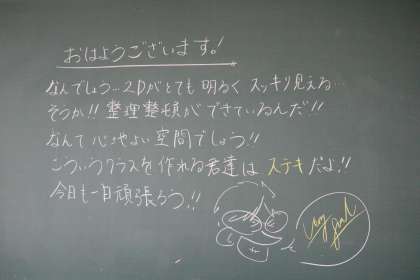 おはようございます。!
なんでしょう…2Dがとても明るくスッキリ見える…
そうか!!整理整頓ができているんだ!!
なんて心地よい空間でしょう!!
こういうクラスを作れる君達はステキだよ!!
今日も一日頑張ろう!!
Very good